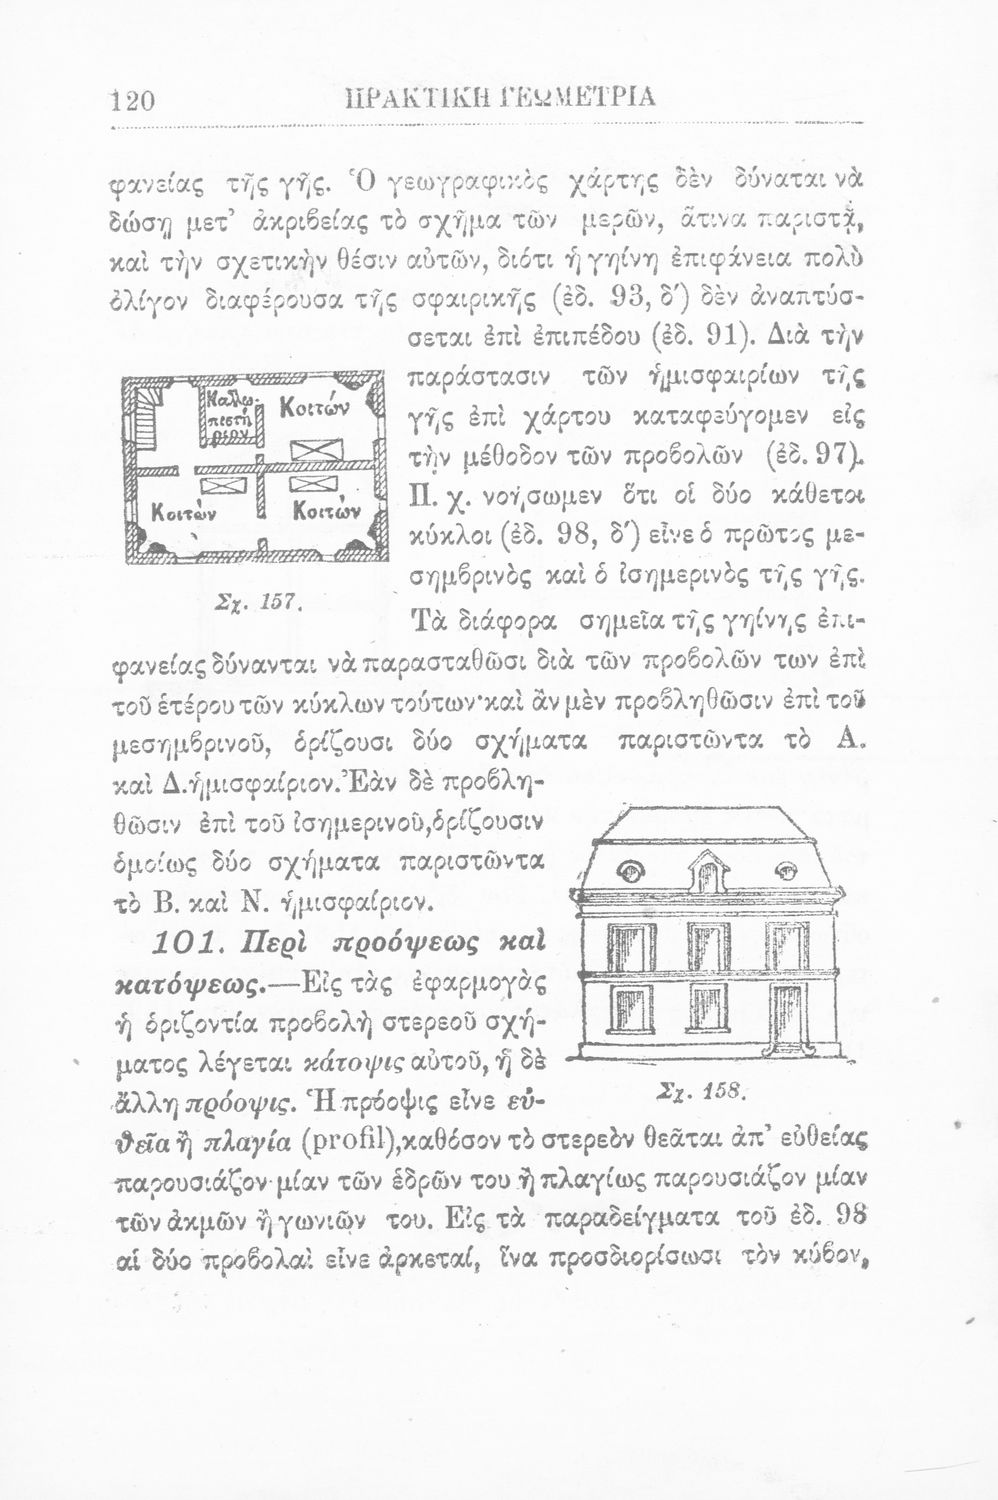 120 ΠΡΑΚΤΙΚΗ ΓΕΩΜΕΤΡΙΑ
φανείας τῆς γῆς. Ὁ γεωγραφικὸς χάρτης δὲν δύναται νὰ
δώσῃ μετ’ ἀκριβείας τὸ σχῆμα τῶν μερῶν, ἅτινα παριστᾷ,
καὶ τὴν σχετικὴν θέσιν αὐτῶν, διότι ἡ γηίνη ἐπιφάνεια πολὺ
ὀλίγον διαφέρουσα τῆς σφαιρικῆς (ἐδ. 93, δ′) δὲν ἀναπτύσ-
σεται ἐπὶ ἐπιπέδου (ἐδ. 91). Διὰ τὴν
παράστασιν τῶν ἡμισφαιρίων τῆς
γῆς ἐπὶ χάρτου καταφεύγομεν εἰς
τὴν μέθοδον τῶν προβολῶν (ἐδ. 97).
Π. χ. νοήσωμεν ὅτι οἱ δύο κάθετοι
κύκλοι (ἐδ. 98, δ′) εἶνε ὁ πρῶτος με-
σημβρινὸς καὶ ὁ ἰσημερινὸς τῆς γῆς.
Τὰ διάφορα σημεῖα τῆς γηίνης ἐπι-
Καλλω-
πιστή
ριον
Κοιτών
Κοιτών
Κοιτών
Σχ. 157.
φανείας δύνανται νὰ παρασταθῶσι διὰ τῶν προβολῶν των ἐπὶ
τοῦ ἑτέρου τῶν κύκλων τούτων· καὶ ἂν μὲν προβληθῶσιν ἐπὶ τοῦ
μεσημβρινοῦ, ὁρίζουσι δύο σχήματα παριστῶντα τὸ Α.
καὶ Δ. ἡμισφαίριον. Ἐὰν δὲ προβλη-
θῶσιν ἐπὶ τοῦ ἰσημερινοῦ, ὁρίζουσιν
ὁμοίως δύο σχήματα παριστῶντα
τὸ Β. καὶ Ν. ἡμισφαίριον.
101. Περὶ προόψεως καὶ
κατόψεως.—Εἰς τὰς ἐφαρμογὰς
ἡ ὁριζοντία προβολὴ στερεοῦ σχή-
ματος λέγεται κάτοψις αὐτοῦ, ἡ δὲ
ἄλλη πρόοψις. Ἡ πρόοψις εἶνε εὐ-
Σχ. 158.
θεῖα ἢ πλαγία (profil), καθόσον τὸ στερεὸν θεᾶται ἀπ’ εὐθείας
παρουσιάζον μίαν τῶν ἑδρῶν του ἢ πλαγίως παρουσιάζον μίαν
τῶν ἀκμῶν ἢ γωνιῶν του. Εἰς τὰ παραδείγματα τοῦ ἐδ. 98
αἱ δύο προβολαὶ εἶνε ἀρκεταί, ἵνα προσδιορίσωσι τὸν κύβον,